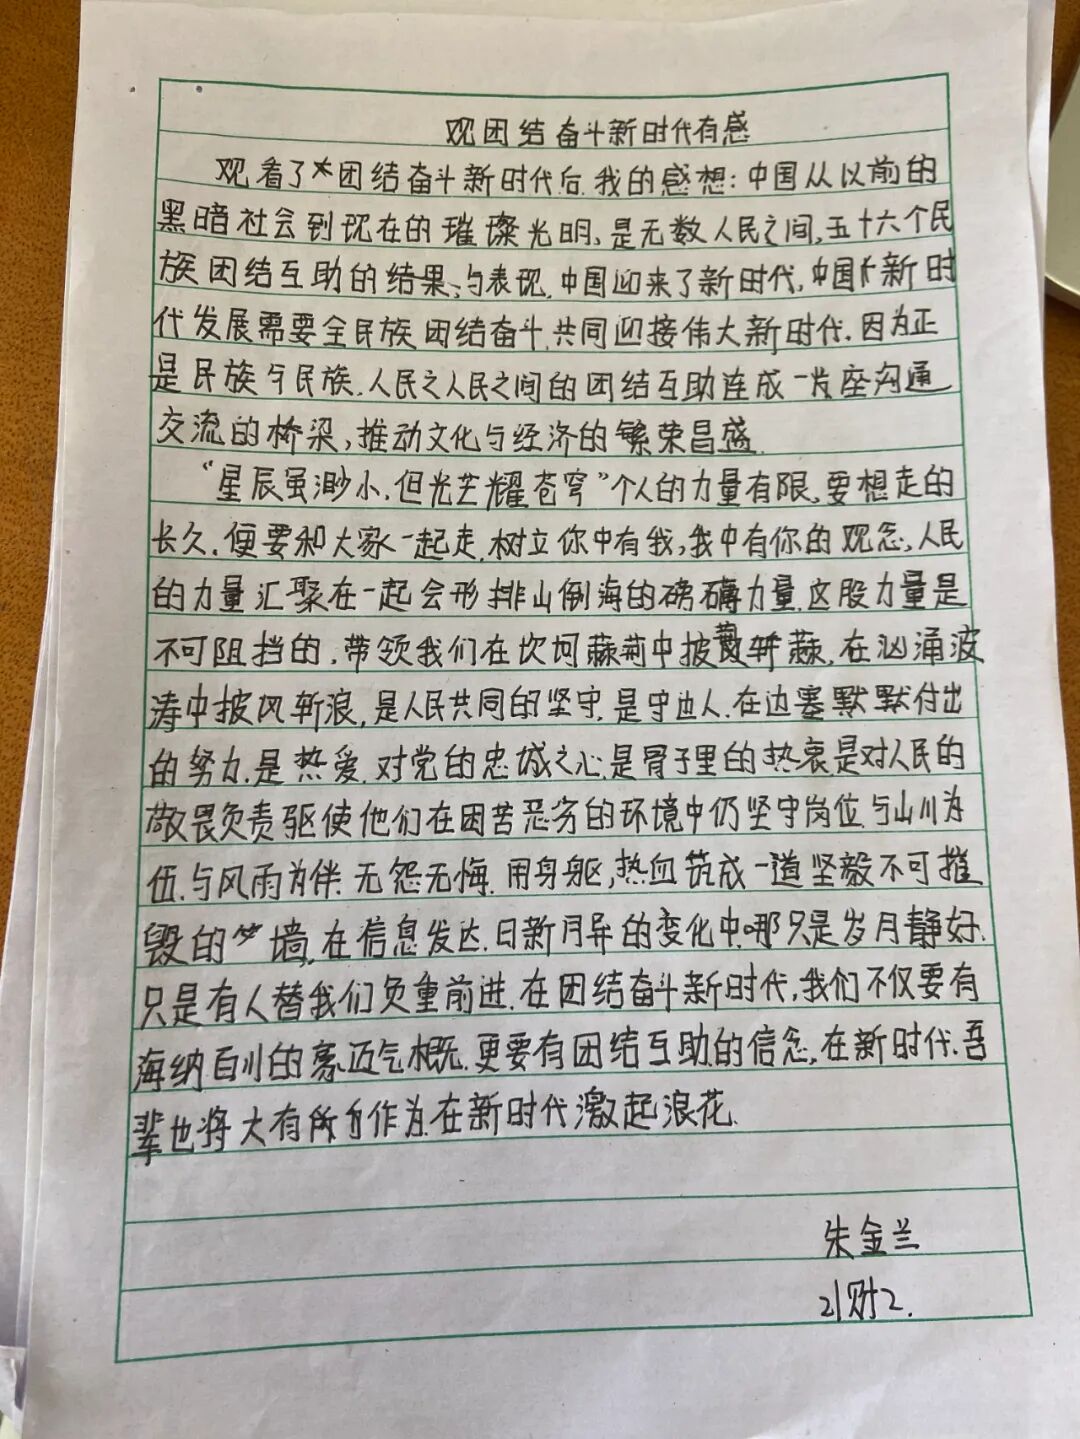 观团结奋斗新时代有感
观看了团结奋斗新时代后.我的感想:中国从以前的
黑暗社会到现在的璀璨光明,是无数人民之间,五十六个民
族团结互助的结果,与表现.中国迎来了新时代,中国新时
代发展需要全民族团结奋斗.共同迎接伟大新时代.因为正
是民族与民族.人民之人民之间的团结互助连成一座沟通
交流的桥梁,推动文化与经济的繁荣昌盛.
“星辰虽渺小,但光芒耀苍穹”个人的力量有限,要想走的
长久.便要和大家一起走.树立你中有我,我中有你的观念,人民
的力量汇聚在一起会形排山倒海的磅礴力量.这股力量是
不可阻挡的.带领我们在坎坷荆中披斩,在汹涌波
涛中披风斩浪,是人民共同的坚守.是守边人.在边塞默默付出
的努力.是热爱.对党的忠诚之心.是骨子里的热衷是对人民的
敬畏负责驱使他们在困苦恶劣的环境中仍坚守岗位.与山川为
伍.与风雨为伴.无怨无悔.用身躯,热血筑成一道坚毅不可摧
毁的墙,在信息发达.日新月异的变化中.哪只是岁月静好.
只是有人替我们负重前进.在团结奋斗新时代,我们不仅要有
海纳百川的豪迈气概.更要有团结互助的信念,在新时代.吾
辈也将大有所作为.在新时代激起浪花.
朱金兰
21财2.